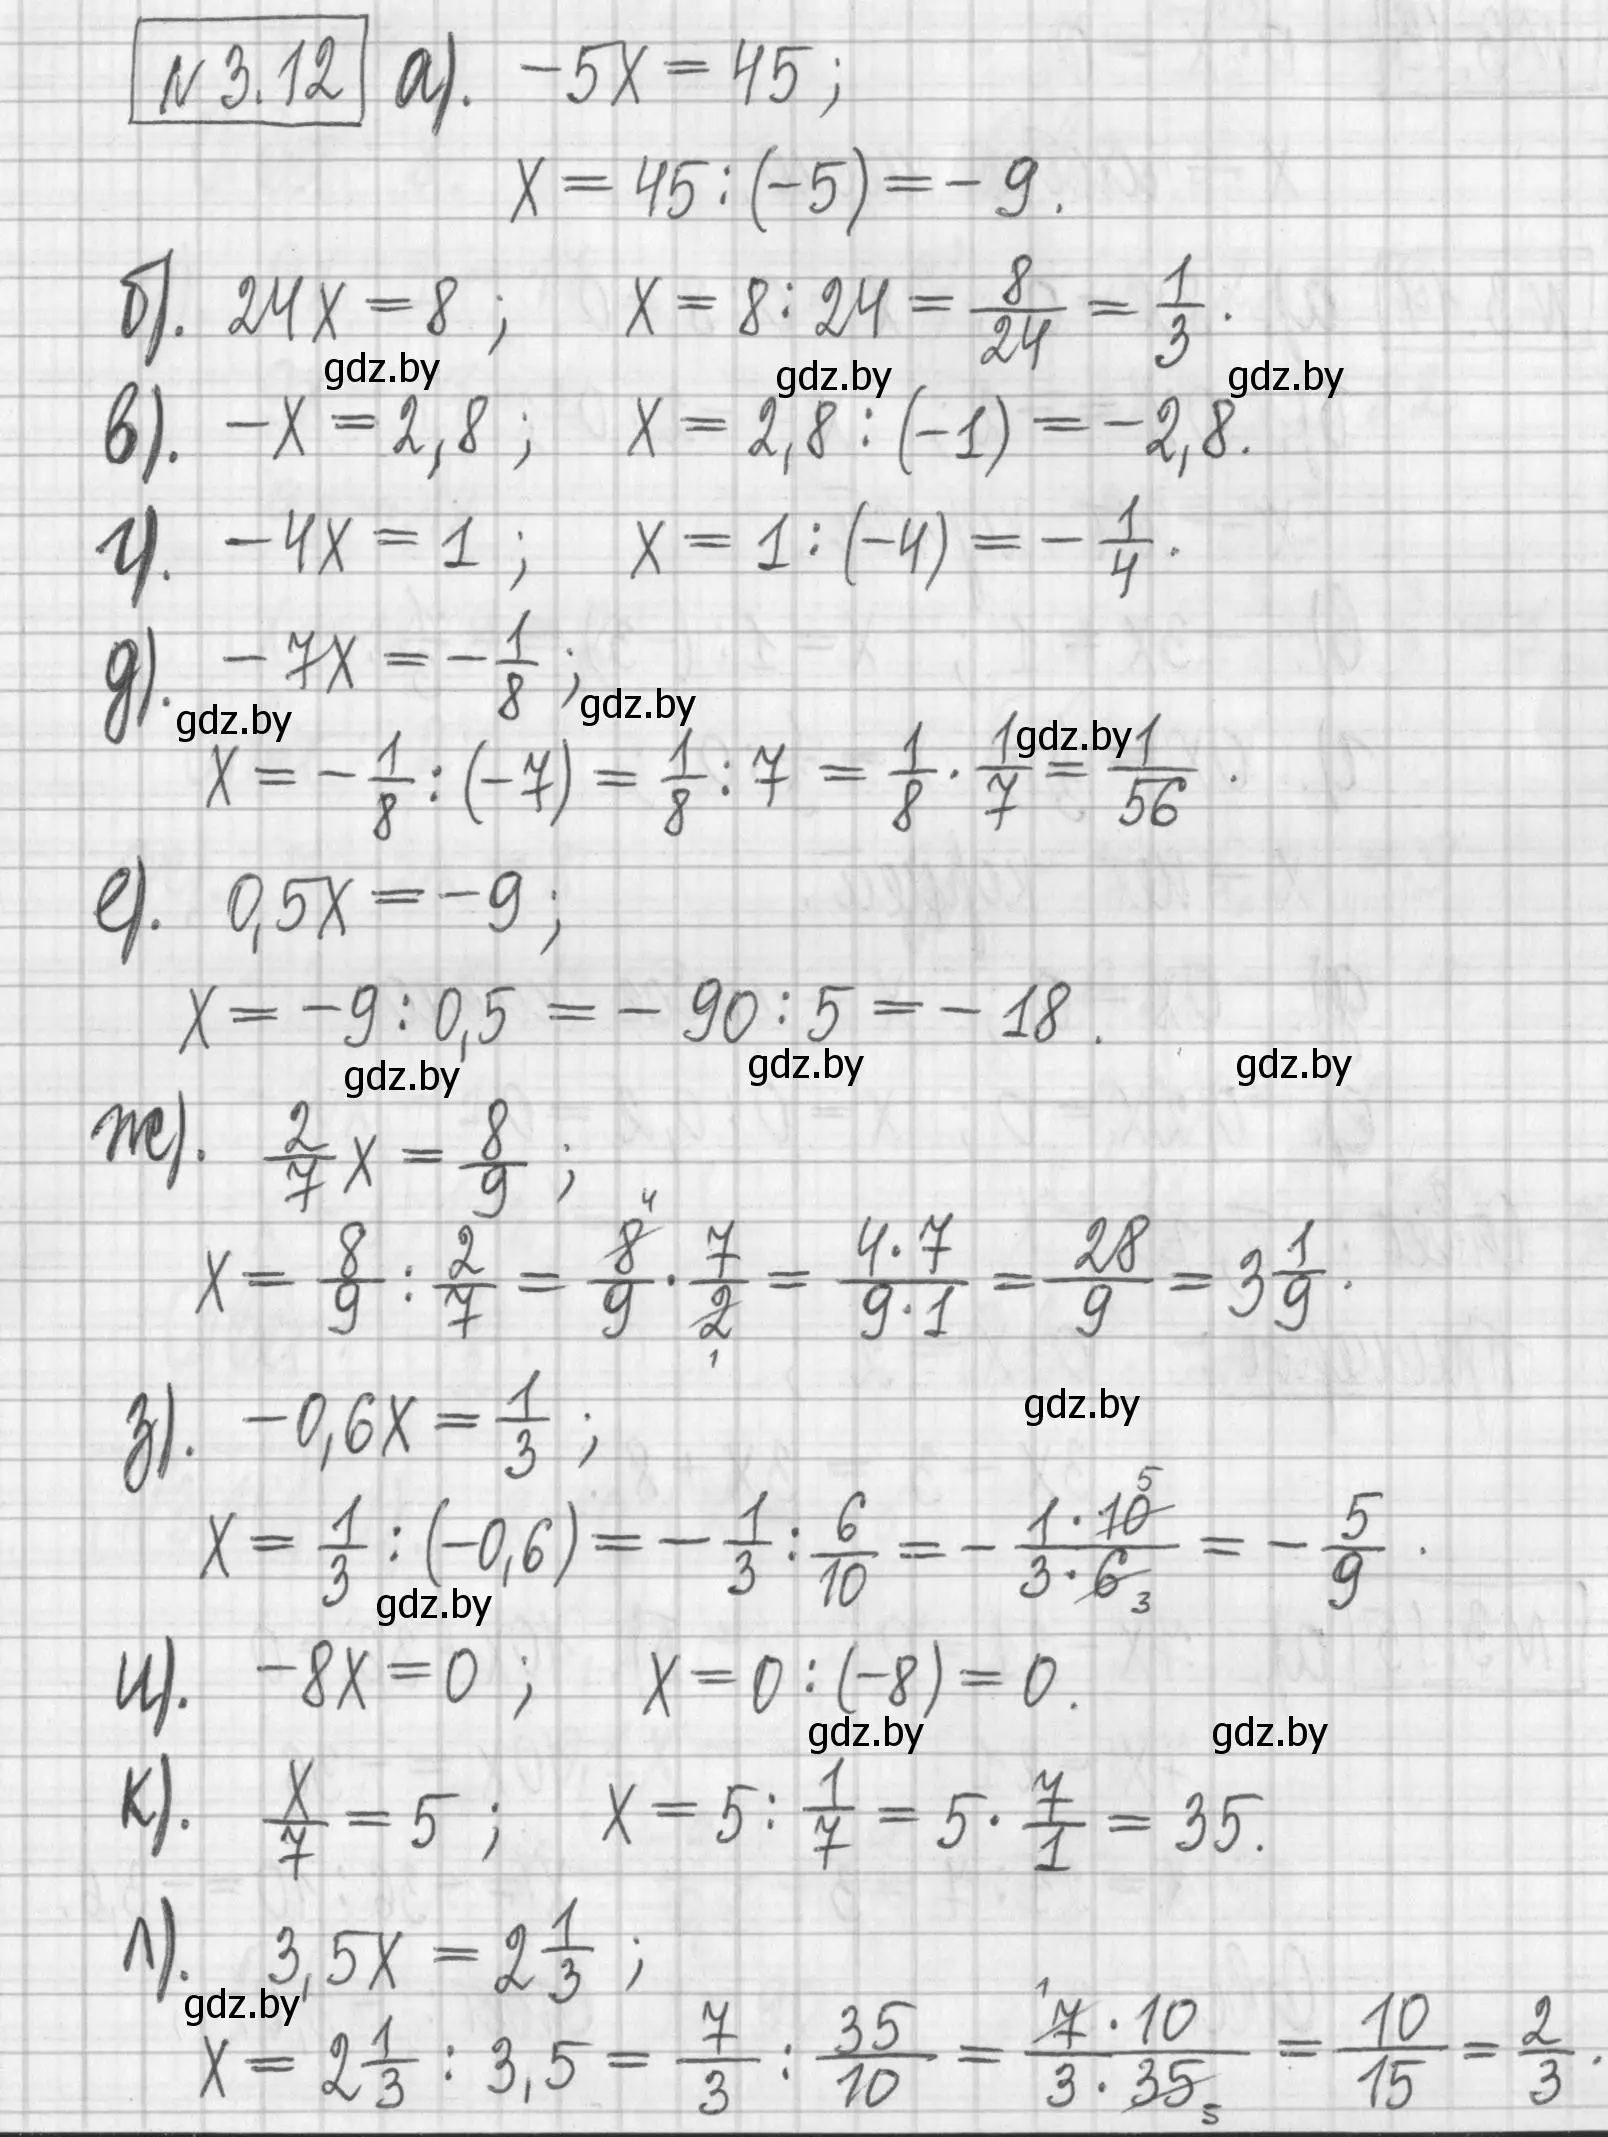 N 3.12 а). -5x = 45 ;
x = 45 : (-5) = - 9 .
б). 24x = 8 ; x = 8 : 24 = 8/24 = 1/3 .
gdz.by gdz.by gdz.by
в). -x = 2,8 ; x = 2,8 : (-1) = -2,8 .
г). -4x = 1 ; x = 1 : (-4) = - 1/4 .
д). - 7x = - 1/8 ;
gdz.by gdz.by gdz.by
x = - 1/8 : (-7) = 1/8 : 7 = 1/8 · 1/7 = 1/56 .
е). 0,5x = -9 ;
x = -9 : 0,5 = - 90 : 5 = - 18 .
gdz.by gdz.by gdz.by
ж). 2/7 x = 8/9 ;
x = 8/9 : 2/7 = 8/9 · 7/2 = 4·7/9·1 = 28/9 = 3 1/9 .
4 1
gdz.by
з). -0,6x = 1/3 ;
x = 1/3 : (-0,6) = - 1/3 : 6/10 = - 1·10/3·6 = - 5/9 .
5 3
gdz.by
и). -8x = 0 ; x = 0 : (-8) = 0 .
gdz.by gdz.by
к). x/7 = 5 ; x = 5 : 1/7 = 5 · 7/1 = 35 .
л). 3,5x = 2 1/3 ;
gdz.by
x = 2 1/3 : 3,5 = 7/3 : 35/10 = 7·10/3·35 = 10/15 = 2/3 .
1 5